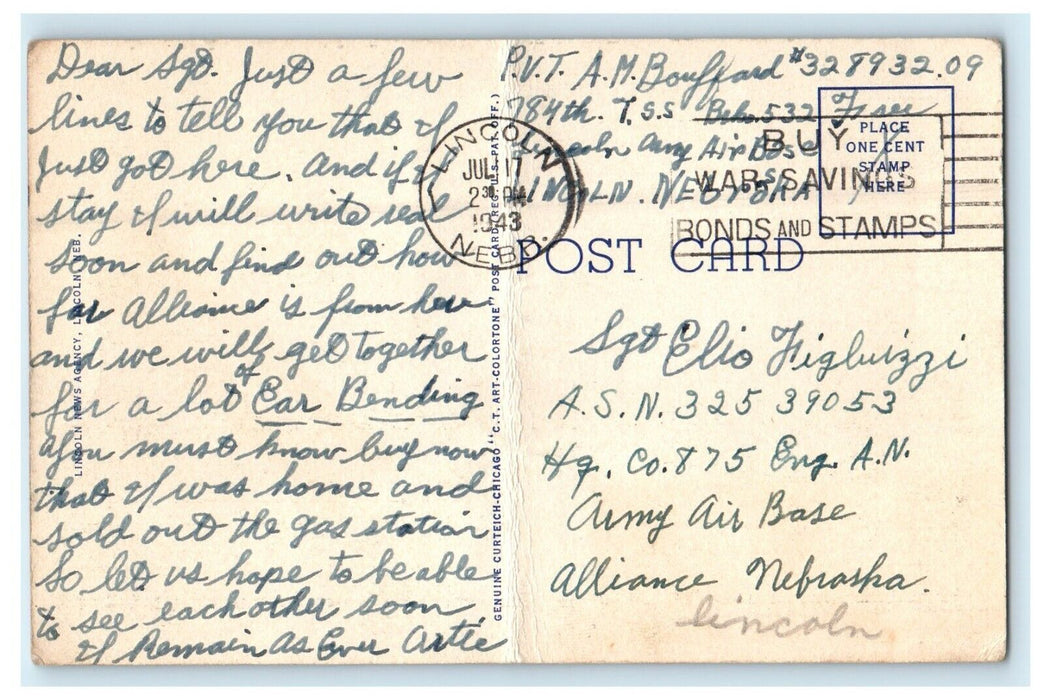 Dear Sgt. Just a few
lines to tell you that I
Just got here. And if I
stay I will write real
soon and find out how
far Alliance is from here
and we will get together
for a lot of Ear Bending
you must know buy now
that I was home and
sold out the gas station
So let us hope to be able
to see each other soon
I Remain As Ever Artie
LINCOLN NEWS AGENCY, LINCOLN, NEB.
GENUINE CURTEICH-CHICAGO "C.T. ART-COLORTONE" POST CARD (REG. U.S. PAT. OFF.)
P.V.T. A.M. Bouffard #328932.09
784th. T.S.S Bks. 532 Free
Lincoln Army Air Base
LINCOLN. NEBRSKA
LINCOLN
JUL 17
2 30 PM
1943
NEBR.
BUY
WAR SAVINGS
BONDS AND STAMPS
PLACE
ONE CENT
STAMP
HERE
POST CARD
Sgt Elio Figluizzi
A.S.N. 325 39053
Hq. Co. 875 Eng. A.N.
Army Air Base
Alliance Nebraska.
lincoln